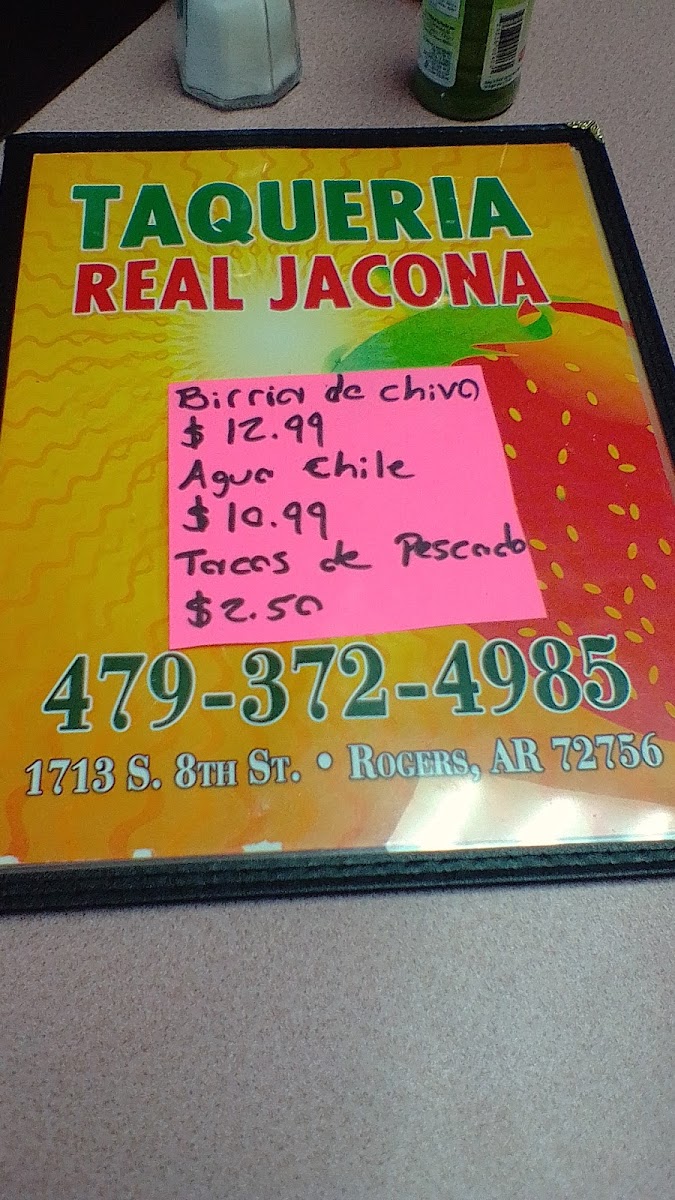 TAQUERIA
REAL JACONA
Birria de Chivo
$ 12.99
Agua Chile
$ 10.99
Tacos de Pescado
$2.50
479-372-4985
1713 S. 8TH ST. • ROGERS, AR 72756